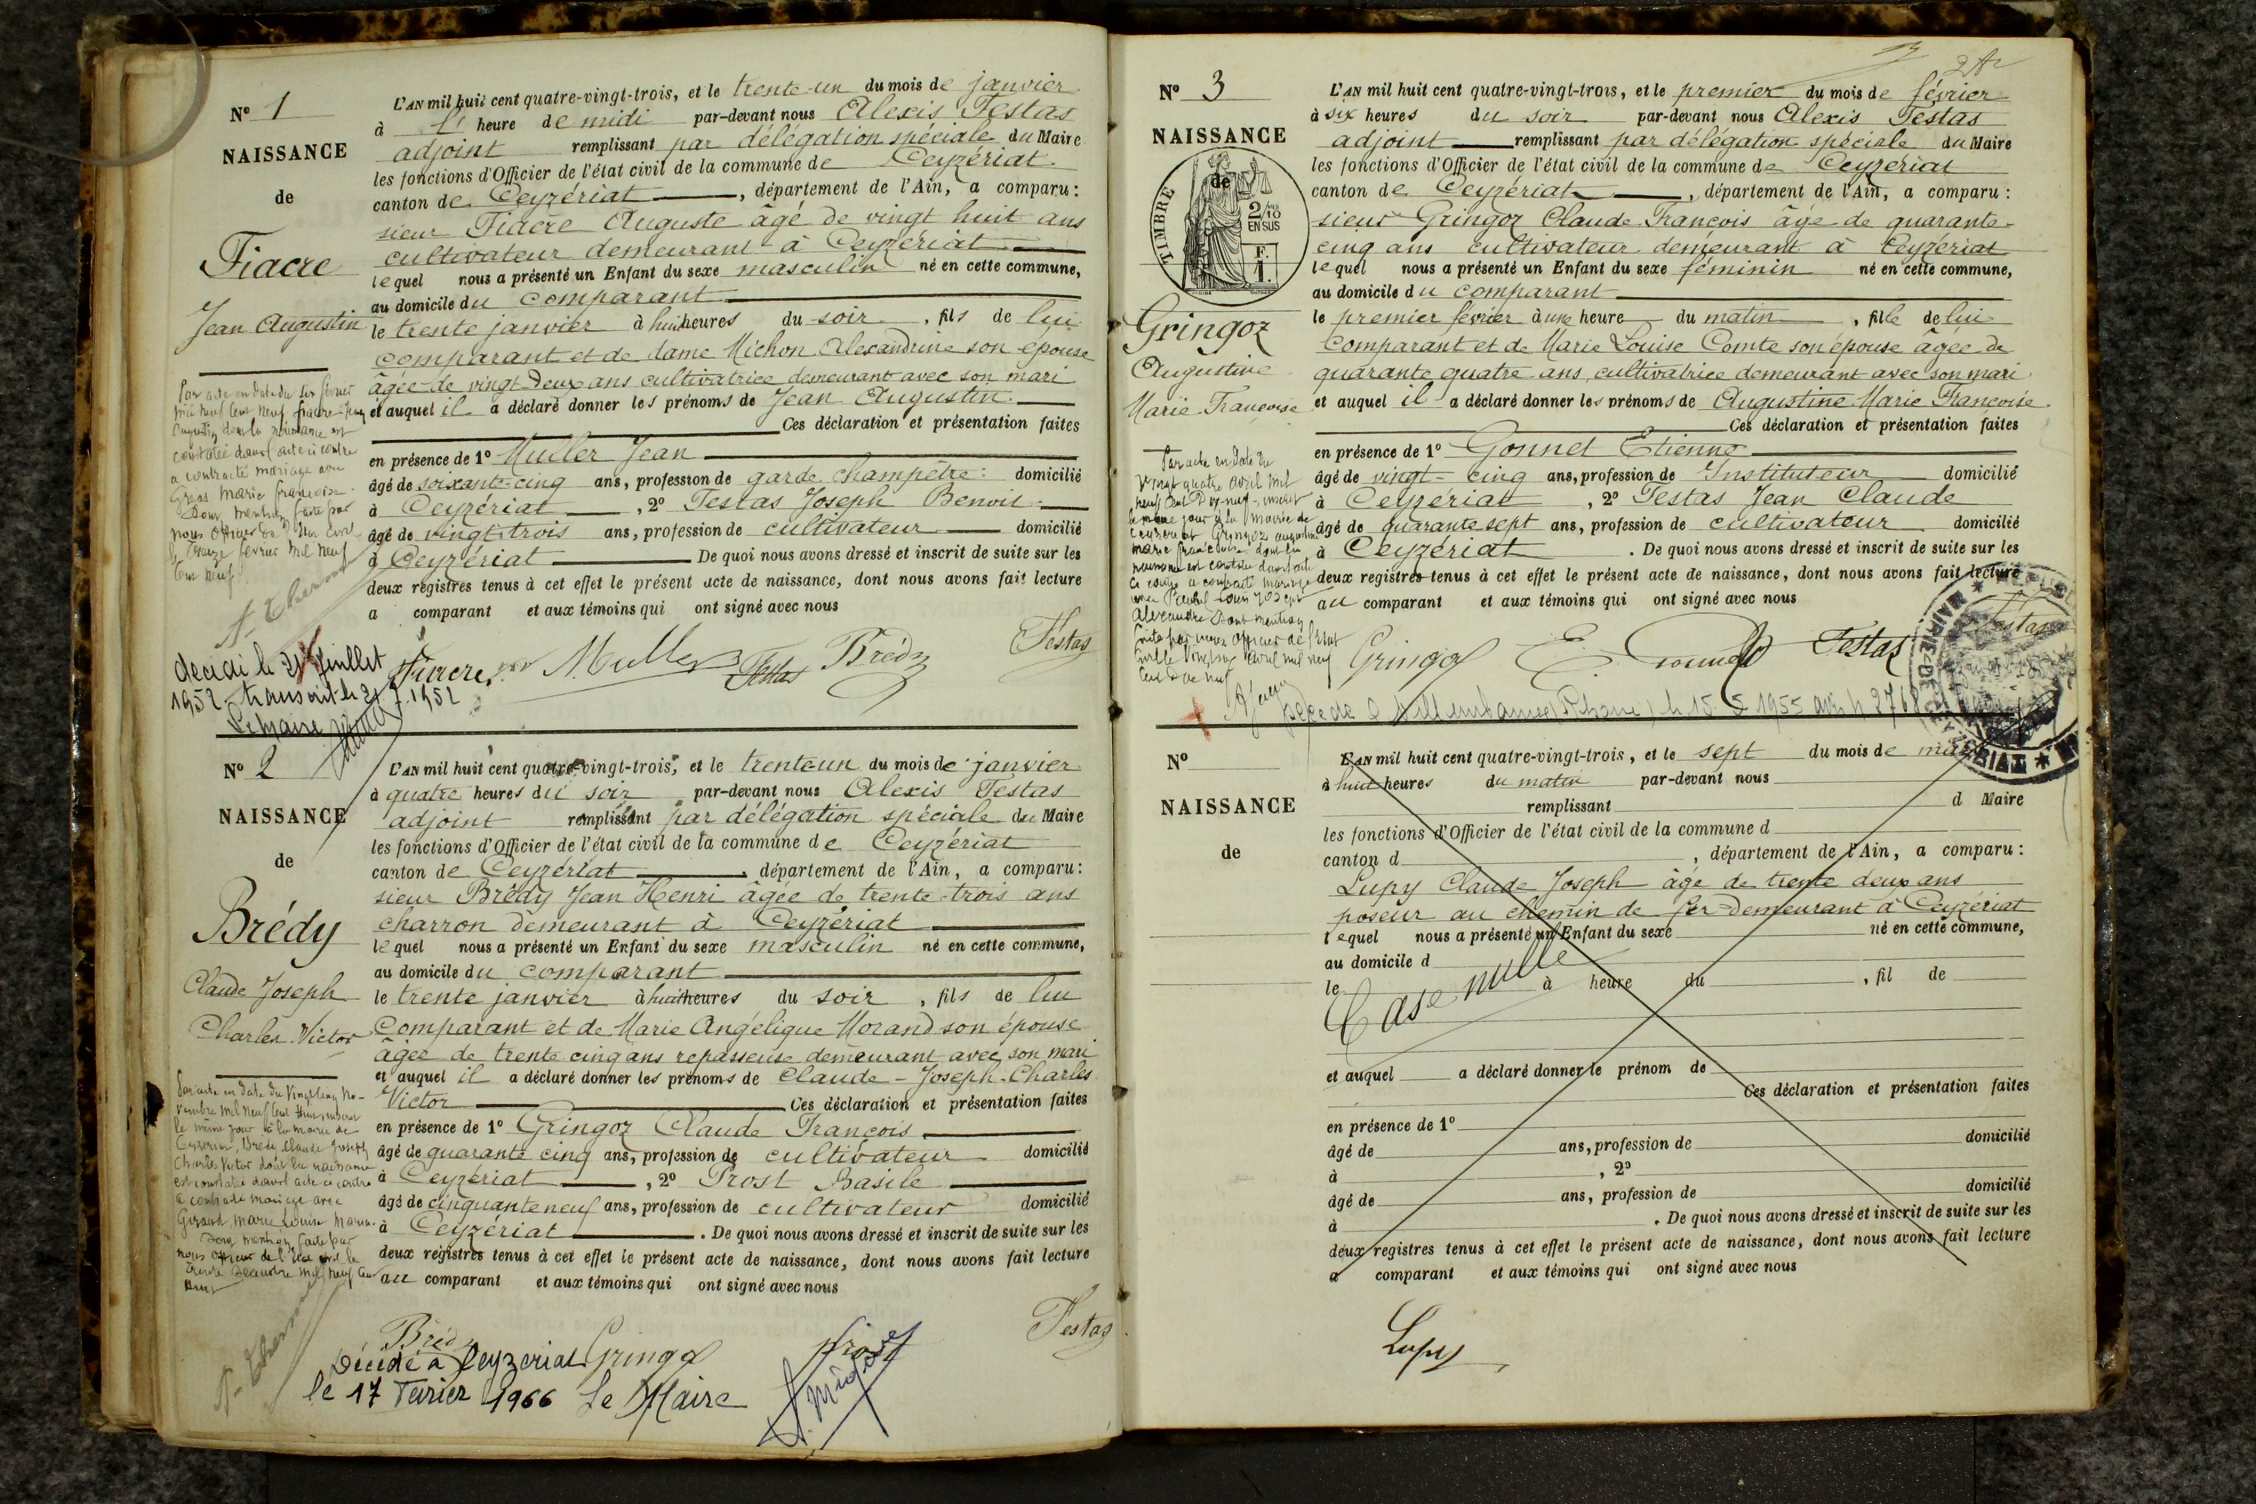 N° 1
NAISSANCE
de
Fiacre
Jean Augustin
L'AN mil huit cent quatre-vingt-trois, et le trente-un du mois de janvier
à heure de midi par-devant nous Alexis Testas
adjoint remplissant par délégation spéciale du Maire
les fonctions d'Officier de l'état civil de la commune de Ceyzériat
canton de Ceyzériat, département de l'Ain, a comparu:
sieur Fiacre Auguste âgé de vingt huit ans
cultivateur demeurant à Ceyzériat
lequel nous a présenté un Enfant du sexe masculin né en cette commune,
au domicile du comparant
le trente janvier à huit heures du soir, fils de lui
comparant et de dame Michon Alexandrine son épouse
âgée de vingt deux ans cultivatrice demeurant avec son mari
et auquel il a déclaré donner les prénoms de Jean Augustin
Ces déclaration et présentation faites
en présence de 1° Muller Jean
âgé de soixante-cinq ans, profession de garde champêtre domicilié
à Ceyzériat, 2° Testas Joseph Benoit
âgé de vingt-trois ans, profession de cultivateur domicilié
à Ceyzériat De quoi nous avons dressé et inscrit de suite sur les
deux registres tenus à cet effet le présent acte de naissance, dont nous avons fait lecture
a comparant et aux témoins qui ont signé avec nous
Par acte en date du
mil neuf cent neuf fiacre Jean
Augustin dont la naissance est
constatée dans l'acte ci contre
a contracté mariage avec
Gros Marie françoise
Dont mention faite par
nous Officier de l'Etat civil
le février mil neuf
cent neuf
Fiacre Muller Testas Brédy Testas
décédé le 31 Juillet
1952 transcrit le 31.7.1952
Le Maire
N° 2
NAISSANCE
de
Brédy
Claude Joseph
Charles Victor
L'AN mil huit cent quatre-vingt-trois, et le trente un du mois de janvier
à quatre heures du soir par-devant nous Alexis Testas
adjoint remplissant par délégation spéciale du Maire
les fonctions d'Officier de l'état civil de la commune de Ceyzériat
canton de Ceyzériat, département de l'Ain, a comparu:
sieur Brédy Jean Henri âgée de trente-trois ans
charron demeurant à Ceyzériat
lequel nous a présenté un Enfant du sexe masculin né en cette commune,
au domicile du comparant
le trente janvier à huit heures du soir, fils de lui
Comparant et de Marie Angélique Morand son épouse
âgée de trente cinq ans repasseuse demeurant avec son mari
et auquel il a déclaré donner les prénoms de Claude-Joseph-Charles
Victor Ces déclaration et présentation faites
en présence de 1° Gringoz Claude François
âgé de quarante cinq ans, profession de cultivateur domicilié
à Ceyzériat, 2° Prost Basile
âgé de cinquante neuf ans, profession de cultivateur domicilié
à Ceyzériat. De quoi nous avons dressé et inscrit de suite sur les
deux registres tenus à cet effet le présent acte de naissance, dont nous avons fait lecture
au comparant et aux témoins qui ont signé avec nous
Par acte en date du vingt cinq no-
vembre mil neuf cent
le même jour à la mairie de
Ceyzériat, Brédy Claude Joseph
Charles Victor dont la naissance
est constatée dans l'acte ci contre
a contracté mariage avec
Girand Marie Louise
Dont mention faite par
nous Officier de l'Etat civil le
mil neuf cent
Brédy Gringoz Prost Testas
Décédé à Ceyzeriat
le 17 Février 1966 Le Maire
N° 3
NAISSANCE
de
TIMBRE
2/10
EN SUS
F.
1.
Gringoz
Augustine
Marie Françoise
L'AN mil huit cent quatre-vingt-trois, et le premier du mois de février
à six heures du soir par-devant nous Alexis Testas
adjoint remplissant par délégation spéciale du Maire
les fonctions d'Officier de l'état civil de la commune de Ceyzériat
canton de Ceyzériat, département de l'Ain, a comparu:
sieur Gringoz Claude François âgé de quarante-
cinq ans cultivateur demeurant à Ceyzériat
lequel nous a présenté un Enfant du sexe féminin né en cette commune,
au domicile du comparant
le premier février à une heure du matin, fille de lui
Comparant et de Marie Louise Comte son épouse âgée de
quarante quatre ans, cultivatrice demeurant avec son mari
et auquel il a déclaré donner les prénoms de Augustine Marie Françoise
Ces déclaration et présentation faites
en présence de 1° Gonnet Etienne
âgé de vingt-cinq ans, profession de Instituteur domicilié
à Ceyzériat, 2° Testas Jean Claude
âgé de quarante sept ans, profession de cultivateur domicilié
à Ceyzériat. De quoi nous avons dressé et inscrit de suite sur les
deux registres tenus à cet effet le présent acte de naissance, dont nous avons fait lecture
au comparant et aux témoins qui ont signé avec nous
Par acte en date du
vingt quatre avril mil
neuf cent dix-neuf, inscrit
le même jour à la mairie de
Ceyzériat Gringoz augustine
marie françoise dont la
naissance est constatée dans l'acte
ci contre a contracté mariage
avec Louis Joseph
Alexandre Dont mention
faite par nous Officier de l'Etat
civil le avril mil neuf
cent dix neuf
Gringoz E. Gonnet Testas Testas
MAIRIE DE CEYZERIAT
décédée à Villeurbanne (Rhône) le 15. 5 1955
N°
NAISSANCE
de
L'AN mil huit cent quatre-vingt-trois, et le sept du mois de
à huit heures du matin par-devant nous
remplissant d Maire
les fonctions d'Officier de l'état civil de la commune d
canton d , département de l'Ain, a comparu:
Lupy Claude Joseph âgé de trente deux ans
poseur au chemin de fer demeurant à Ceyzériat
lequel nous a présenté un Enfant du sexe né en cette commune,
au domicile d
le à heure du , fil de
Case nulle
et auquel a déclaré donner le prénom de
Ces déclaration et présentation faites
en présence de 1°
âgé de ans, profession de domicilié
à , 2°
âgé de ans, profession de domicilié
à . De quoi nous avons dressé et inscrit de suite sur les
deux registres tenus à cet effet le présent acte de naissance, dont nous avons fait lecture
a comparant et aux témoins qui ont signé avec nous
Lupy